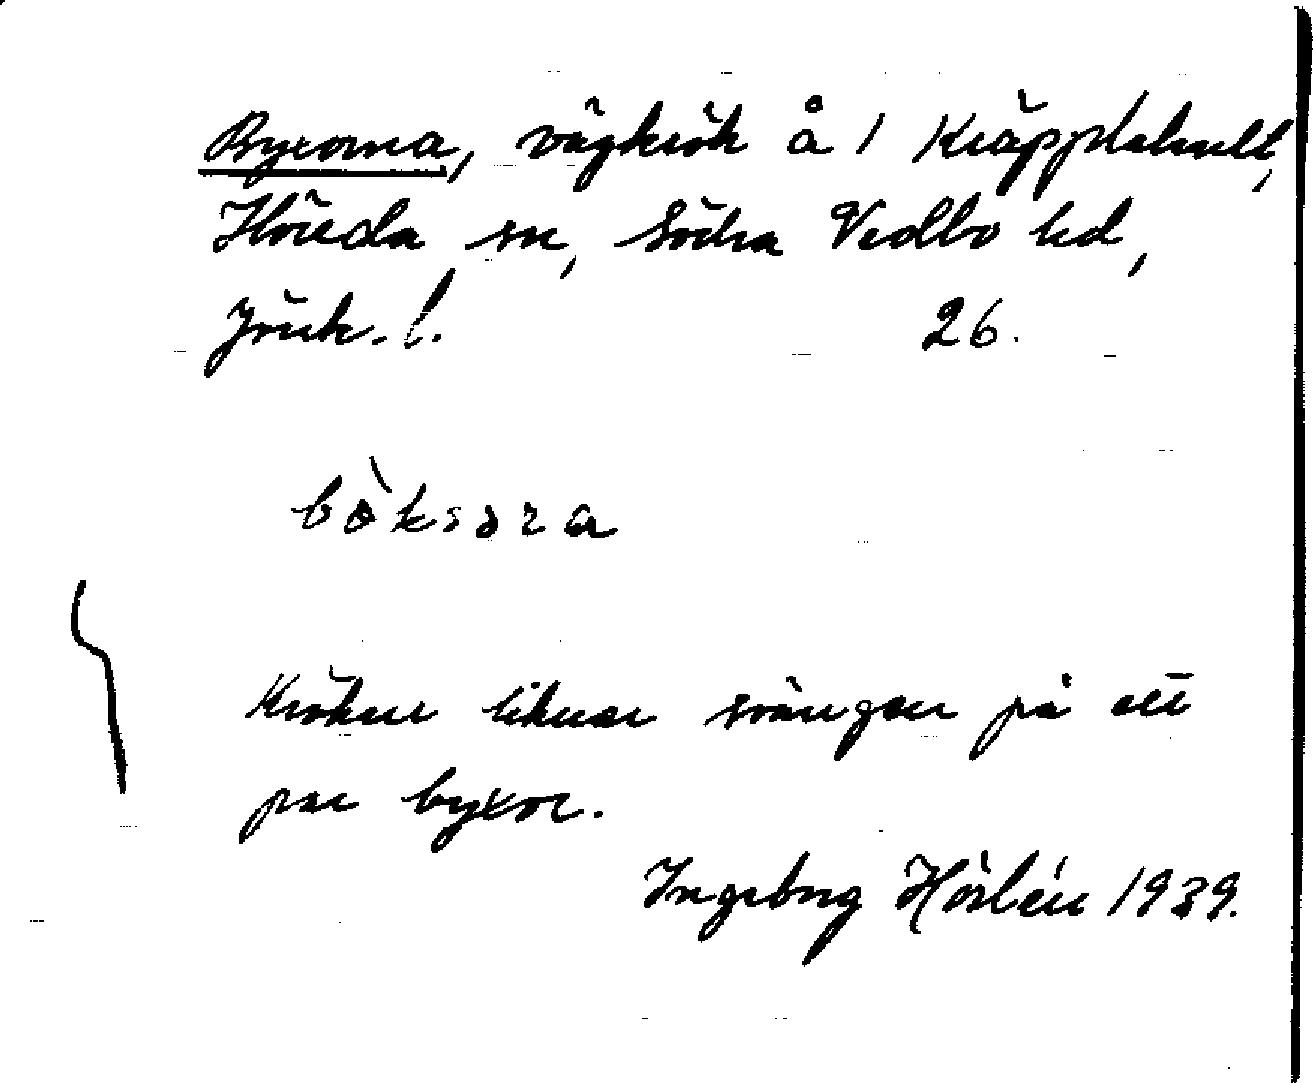 Byxorna, vägkrök å 1 Kräpplehult,
Höreda sn, Södra Vedbo hd,
Jönk. l. 26.
bòksɔra
Kröken liknar svängen på ett
par byxor.
Ingeborg Hörlén 1939.